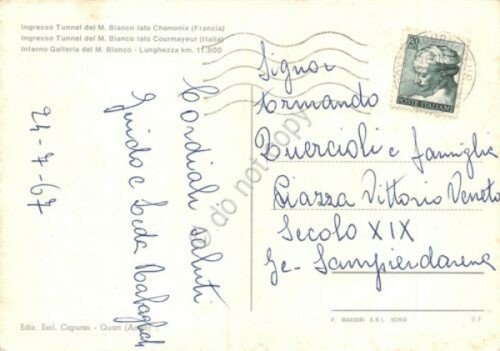 Ingresso Tunnel del M. Bianco lato Chamonix (Francia)
Ingresso Tunnel del M. Bianco lato Courmayeur (Italia)
Interno Galleria del M. Bianco - Lunghezza km. 11.600
24-7-67
Cordiali saluti
Guido e
20
POSTE ITALIANE
Signor
Armando
Quercioli e famiglia
Piazza Vittorio Veneto
Secolo XIX
Ge- Sampierdarena
© do not copy
Ediz. Escl. Capurso - Quart (Aosta)
P. MARZARI S.R.L. SCHIO